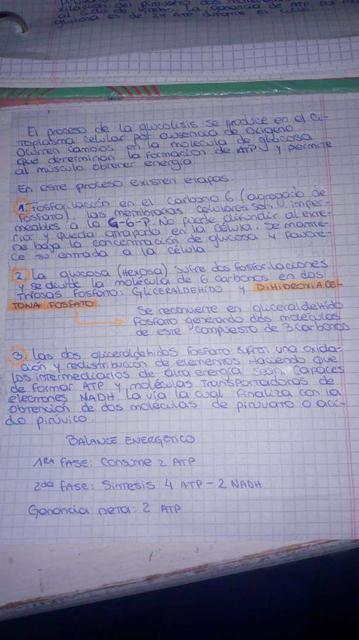 glucosa es de 24 ATP
El proceso de la glucolisis se produce en el ci-
toplasma celular por ausencia de oxigeno.
Ocurren cambios en la molecula de glucosa
que determinan la formacion de ATP y permite
al músculo obtener energía.
En este proceso existen etapas:
1. Fosforilación en el carbono 6 (agregado de
fosfato), las membranas celulares son imper-
meables a la G-6-P. No puede difundir al exte-
rior y queda atrapada en la célula. Se mantie-
ne baja la concentración de glucosa y favore-
ce su entrada a la célula.
2. La glucosa (Hexosa) sufre dos fosforilaciones
y se divide la molécula de 6 carbonos en dos
triosas fosfato: GLICERALDEHIDO y DIHIDROXIACE-
TONA FOSFATO
Se reconvierte en gliceraldehído
fosfato generando dos moléculas
de este compuesto de 3 carbonos
3. Las dos gliceraldehidos fosfato sufren una oxida-
ción y redistribución de elementos haciendo que
los intermediarios de alta energía sean capaces
de formar ATP y moléculas transportadoras de
electrones NADH. La vía la cual finaliza con la
obtención de dos moléculas de piruvato o áci-
do pirúvico
BALANCE ENERGETICO
1ERA FASE: Consume 2 ATP
2da FASE: Sintesis 4 ATP - 2 NADH
Ganancia neta: 2 ATP